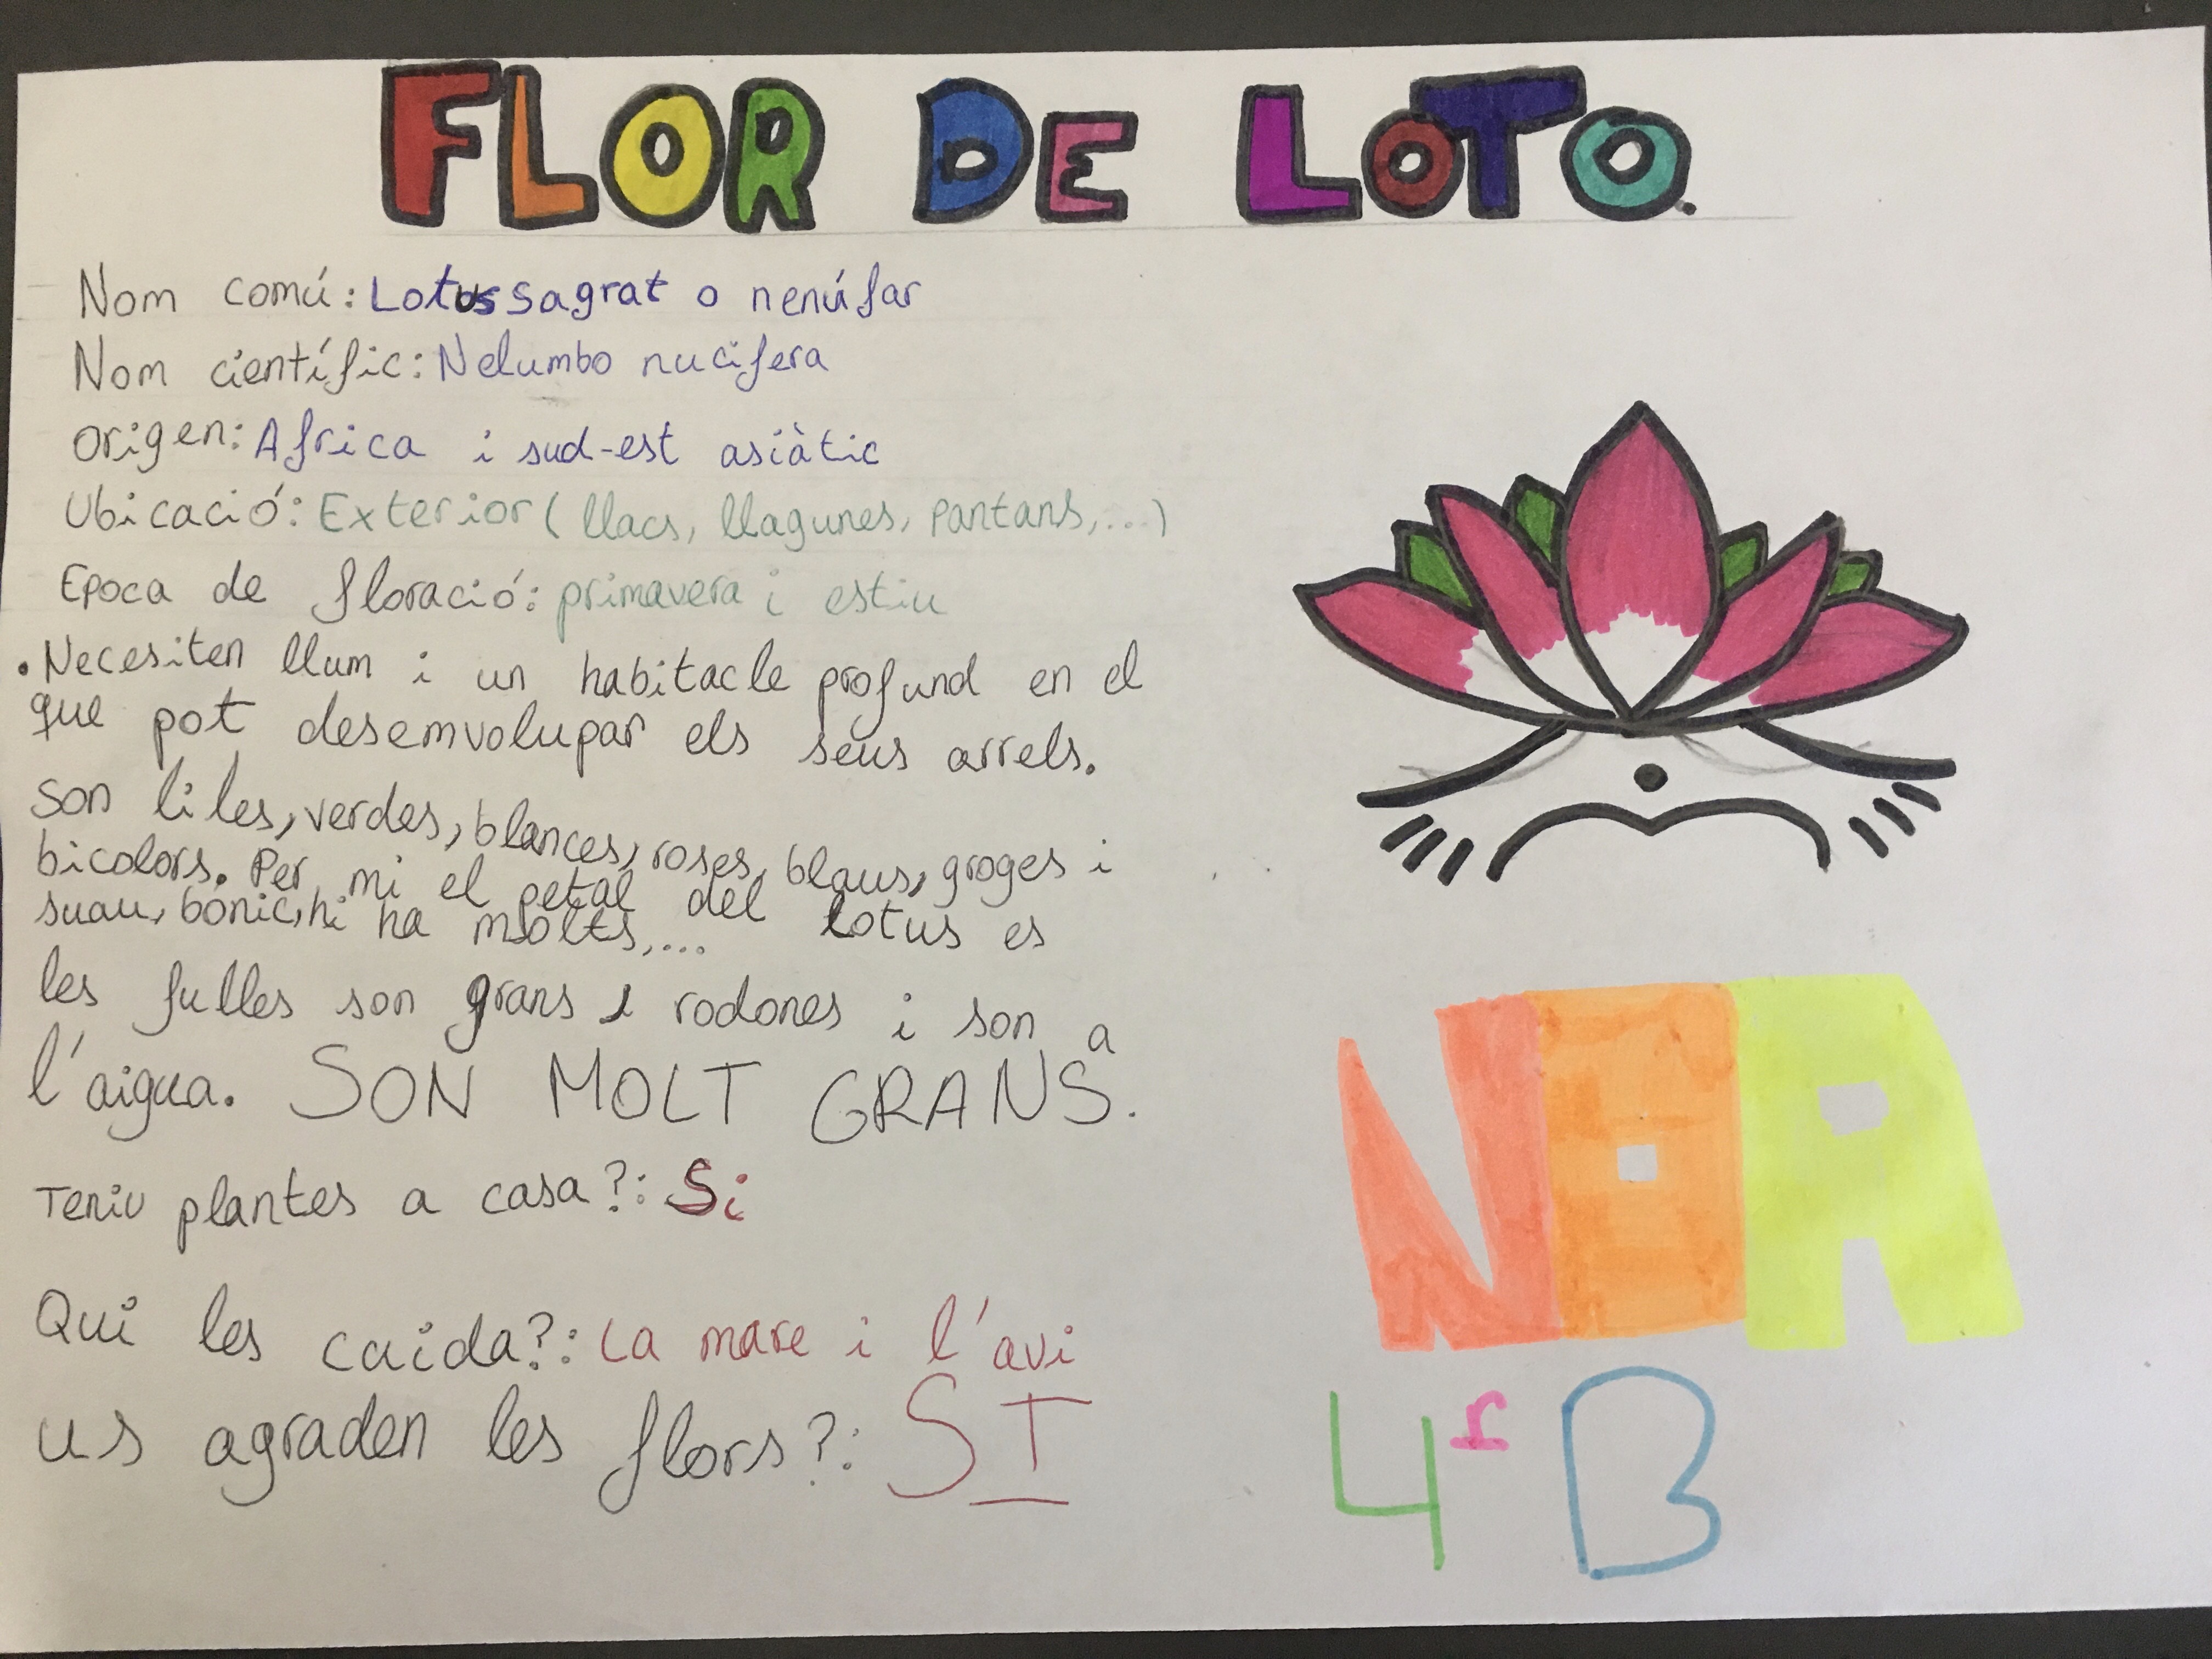 FLOR DE LOTO.
Nom comú: Lotus sagrat o nenúfar
Nom científic: Nelumbo nucifera
Origen: Africa i sud-est asiàtic
Ubicació: Exterior (llacs, llagunes, pantans,...)
Epoca de floració: primavera i estiu
• Necesiten llum i un habitacle profund en el
que pot desemvolupar els seus arrels.
Son liles, verdes, blances, roses, blaus, groges i
bicolors. Per mi el petal del lotus es
suau, bonic, hi ha molts,...
les fulles son grans i rodones i son a
l'aigua. SON MOLT GRANS.
Teniu plantes a casa?: Si
Qui les cuida?: La mare i l'avi
us agraden les flors?: SI
NORA
4r B